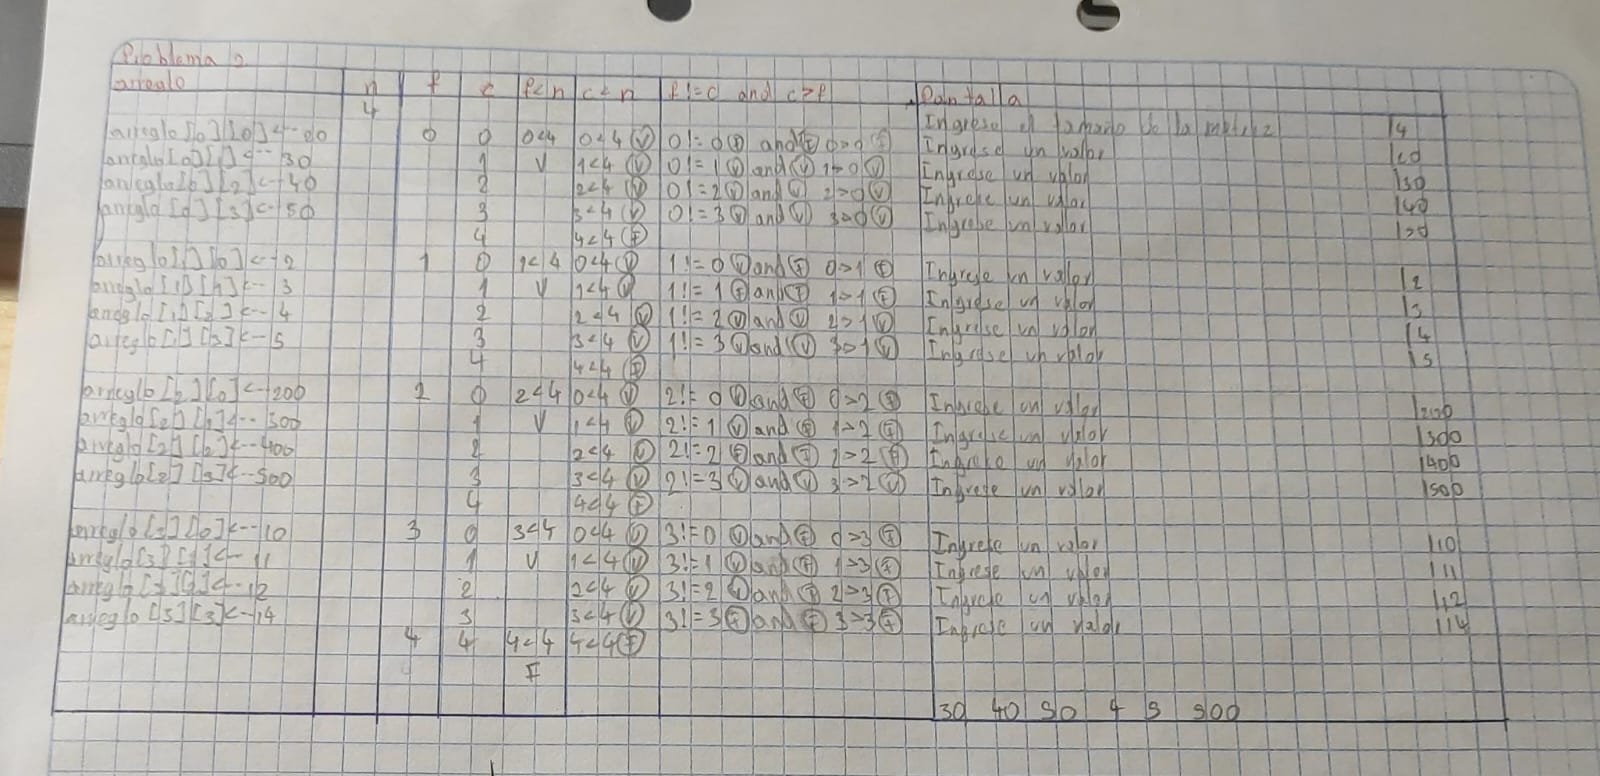 Problema 2
arreglo n f c f<n c<n f!=c and c>f Pantalla
4 Ingrese el tamaño de la matriz 14
arreglo[0][0]<-- 0 0 0<4 0<4 (V) 0!=0 (F) and (F) 0>0 (F) Ingrese un valor
arreglo[0][1]<--30 1 V 1<4 (V) 0!=1 (V) and (V) 1>0 (V) Ingrese un valor 130
arreglo[0][2]<--40 2 2<4 (V) 0!=2 (V) and (V) 2>0 (V) Ingrese un valor 140
arreglo[0][3]<--50 3 3<4 (V) 0!=3 (V) and (V) 3>0 (V) Ingrese un valor
4 4<4 (F)
arreglo[1][0]<--2 1 0 1<4 0<4 (V) 1!=0 (V) and (F) 0>1 (F) Ingrese un valor 12
arreglo[1][1]<--3 1 V 1<4 (V) 1!=1 (F) and (F) 1>1 (F) Ingrese un valor 13
arreglo[1][2]<--4 2 2<4 (V) 1!=2 (V) and (V) 2>1 (V) Ingrese un valor 14
arreglo[1][3]<--5 3 3<4 (V) 1!=3 (V) and (V) 3>1 (V) Ingrese un valor 15
4 4<4 (F)
arreglo[2][0]<--200 2 0 2<4 0<4 (V) 2!=0 (V) and (F) 0>2 (F) Ingrese un valor 1200
arreglo[2][1]<--300 1 V 1<4 (V) 2!=1 (V) and (F) 1>2 (F) Ingrese un valor 1300
arreglo[2][2]<--400 2 2<4 (V) 2!=2 (F) and (F) 2>2 (F) Ingrese un valor 1400
arreglo[2][3]<--500 3 3<4 (V) 2!=3 (V) and (V) 3>2 (V) Ingrese un valor 1500
4 4<4 (F)
arreglo[3][0]<--10 3 0 3<4 0<4 (V) 3!=0 (V) and (F) 0>3 (F) Ingrese un valor 110
arreglo[3][1]<--11 1 V 1<4 (V) 3!=1 (V) and (F) 1>3 (F) Ingrese un valor 111
arreglo[3][2]<--12 2 2<4 (V) 3!=2 (V) and (F) 2>3 (F) Ingrese un valor 112
arreglo[3][3]<--14 3 3<4 (V) 3!=3 (F) and (F) 3>3 (F) Ingrese un valor 114
4 4 4<4 4<4 (F)
F
30 40 50 4 5 500